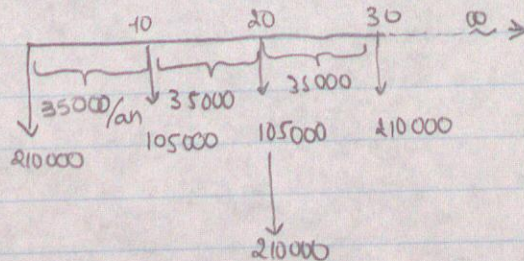 10 20 30 ∞
35000/an 35000 35000
210000 105000 105000 210000
210000